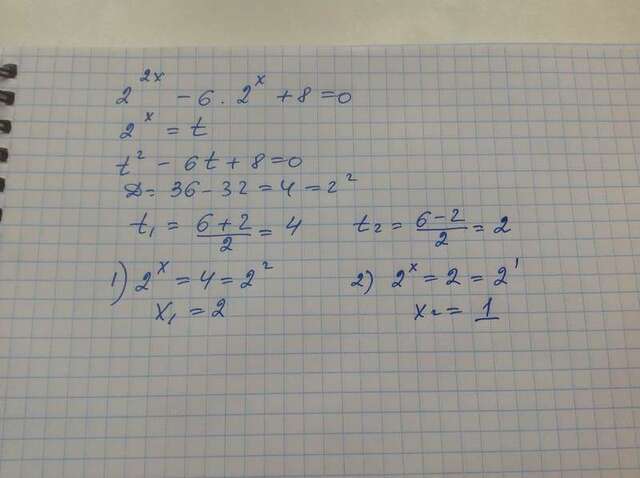 2^{2x} - 6 · 2^x + 8 = 0
2^x = t
t^2 - 6t + 8 = 0
D = 36 - 32 = 4 = 2^2
t_1 = \frac{6+2}{2} = 4    t_2 = \frac{6-2}{2} = 2
1) 2^x = 4 = 2^2    2) 2^x = 2 = 2^1
x_1 = 2    x_2 = 1